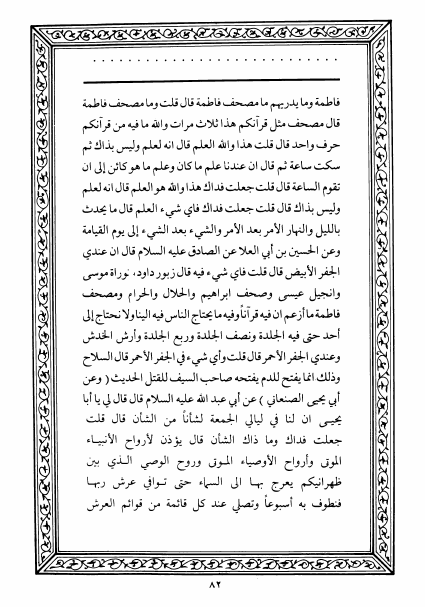 فاطمة وما يدريهم ما مصحف فاطمة قال قلت وما مصحف فاطمة
قال مصحف مثل قرآنكم هذا ثلاث مرات والله ما فيه من قرآنكم
حرف واحد قال قلت هذا والله العلم قال انه لعلم وليس بذاك ثم
سكت ساعة ثم قال ان عندنا علم ما كان وعلم ما هو كائن إلى ان
تقوم الساعة قال قلت جعلت فداك هذا والله هو العلم قال انه لعلم
وليس بذاك قال قلت جعلت فداك فاي شيء العلم قال ما يحدث
بالليل والنهار الأمر بعد الأمر والشيء بعد الشيء إلى يوم القيامة
وعن الحسين بن أبي العلا عن الصادق عليه السلام قال ان عندي
الجفر الأبيض قال قلت فاي شيء فيه قال زبور داود، توراة موسى
وانجيل عيسى وصحف ابراهيم والحلال والحرام ومصحف
فاطمة ما أزعم ان فيه قرآناً وفيه ما يحتاج الناس فيه الينا ولا نحتاج إلى
أحد حتى فيه الجلدة ونصف الجلدة وربع الجلدة وأرش الخدش
وعندي الجفر الأحمر قال قلت وأي شيء في الجفر الأحمر قال السلاح
وذلك انما يفتح للدم يفتحه صاحب السيف للقتل الحديث ( وعن
أبي يحيى الصنعاني ) عن أبي عبد الله عليه السلام قال قال لي يا أبا
يحيى ان لنا في ليالي الجمعة لشأناً من الشأن قال قلت
جعلت فداك وما ذاك الشأن قال يؤذن لأرواح الأنبياء
الموتى وأرواح الأوصياء الموتى وروح الوصي الذي بين
ظهرانيكم يعرج بها الى السماء حتى توافي عرش ربها
فتطوف به أسبوعاً وتصلي عند كل قائمة من قوائم العرش
٨٢